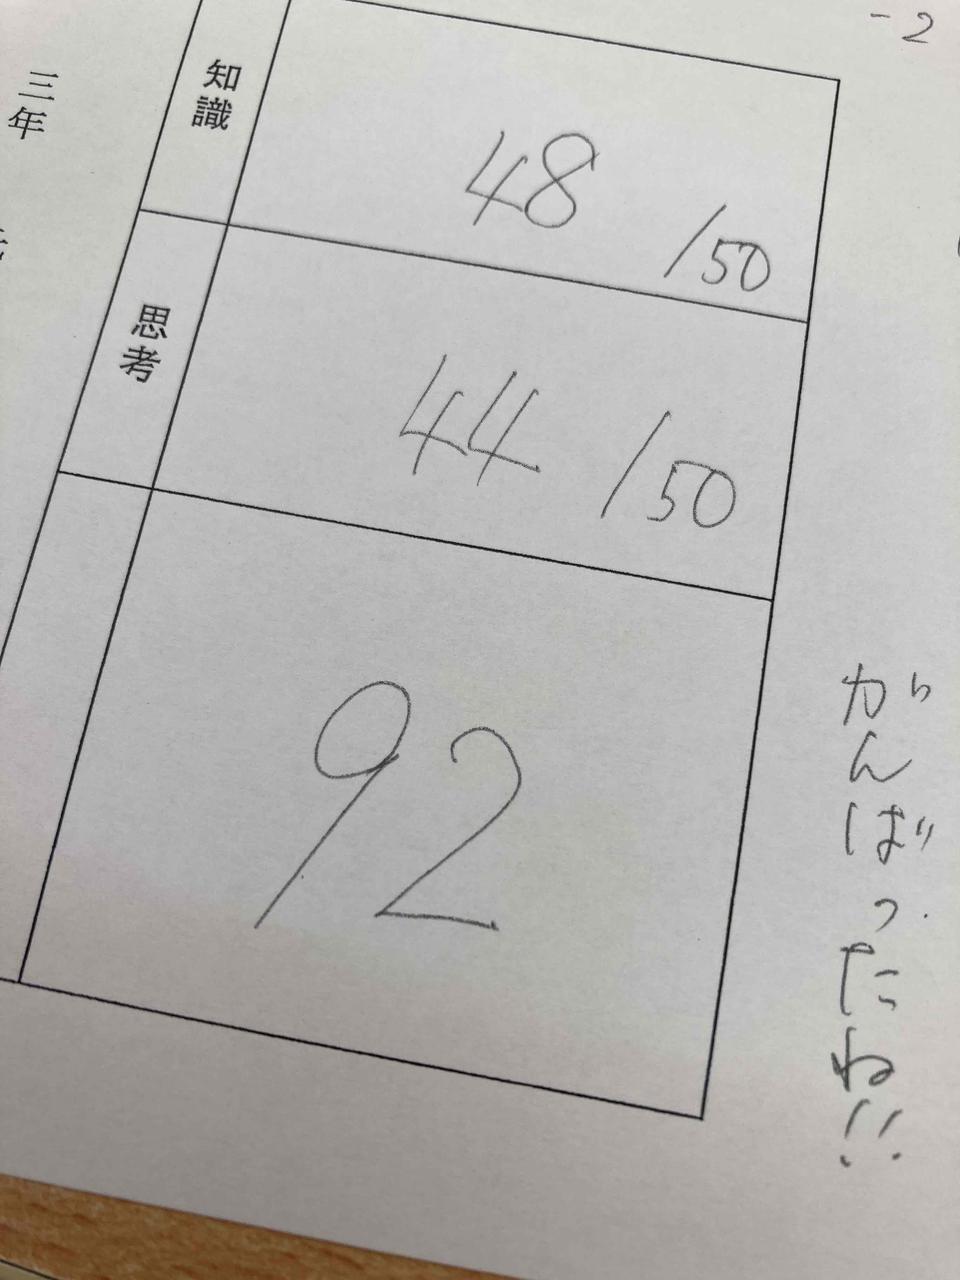 -2
知識
48 /50
思考
44 /50
92
がんばったね!!
三年